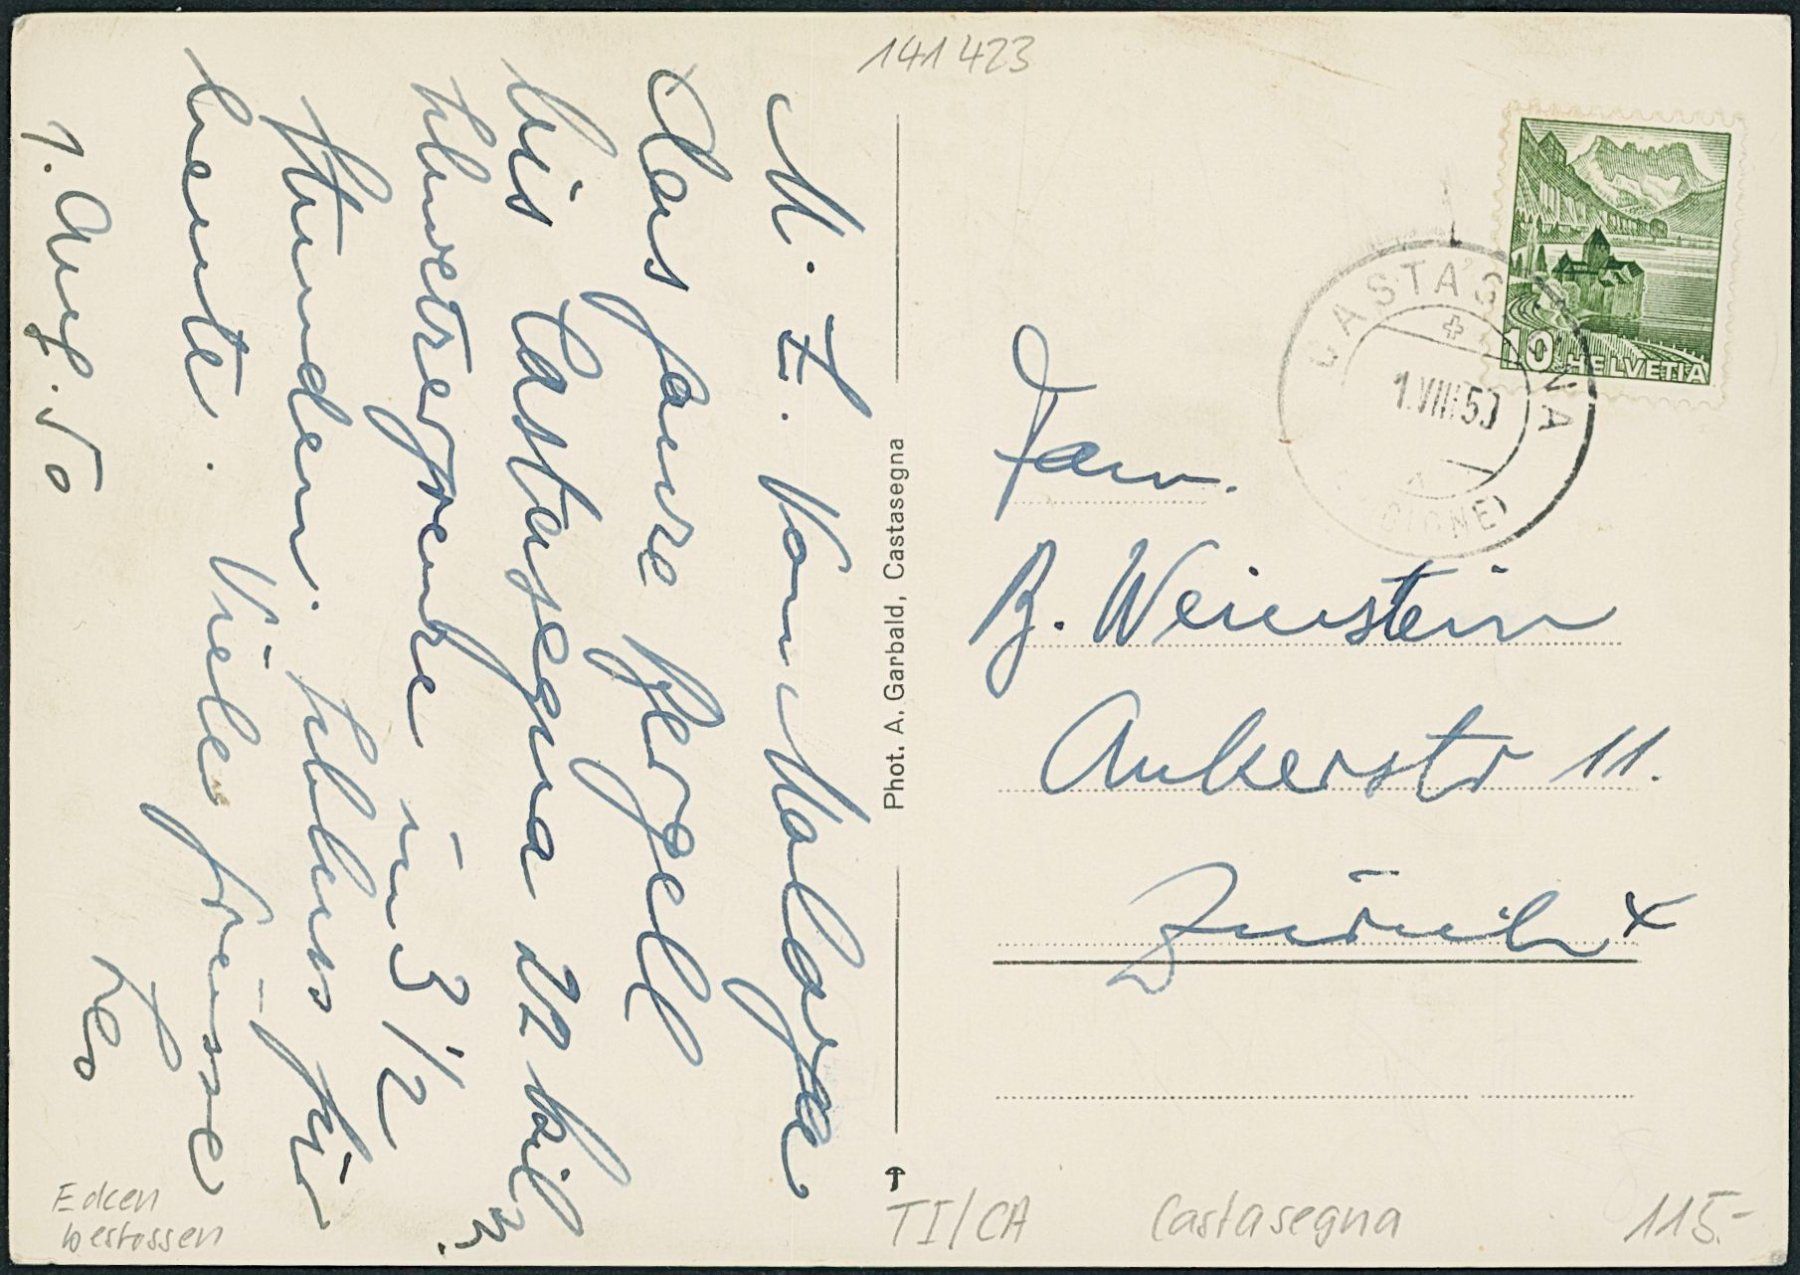 141423
M. L. Von Maloja
das ganze Bergell
bis Castasegna 22 kil
in 3 1/2
Stunden. Schluss für
heute. Viele Grüsse
Leo
1. Aug. 50
Phot. A. Garbald, Castasegna
10 HELVETIA
CASTASEGNA
1.VIII 50
Frau.
B. Weinstein
Ankerstr 11.
Zürich 4
Ecken
bestossen
TI/CA
Castasegna
115.-